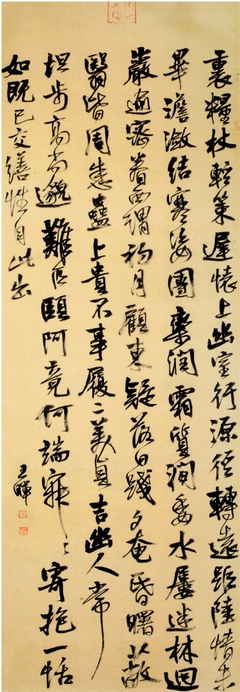 裹糧杖輕策遲懷上幽室行源徑轉遠距陸情未
畢澹瀲結寒姿團欒潤霜質澗委水屢迷林迥
巖逾密眷西謂初月顧東疑落日踐夕奄昏曙蔽
翳皆周悉蠱上貴不事履二美貞吉幽人常
坦步高尚邈難匹頤阿竟何端寂〻寄抱一恬
如既已交繕性自此出
王鐸